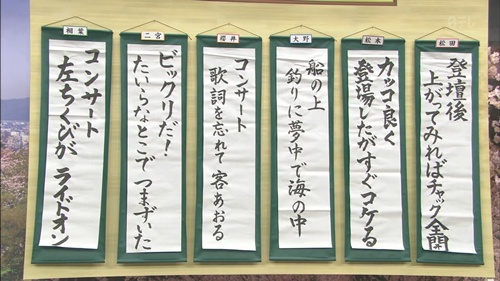 松田
登壇後
上がってみればチャック全開
松本
カッコ良く
登場したがすぐコケる
大野
船の上
釣りに夢中で海の中
櫻井
コンサート
歌詞を忘れて客あおる
二宮
ビックリだ!
たいらなとこでつまずいた
相葉
コンサート
左ちくびがライドオン